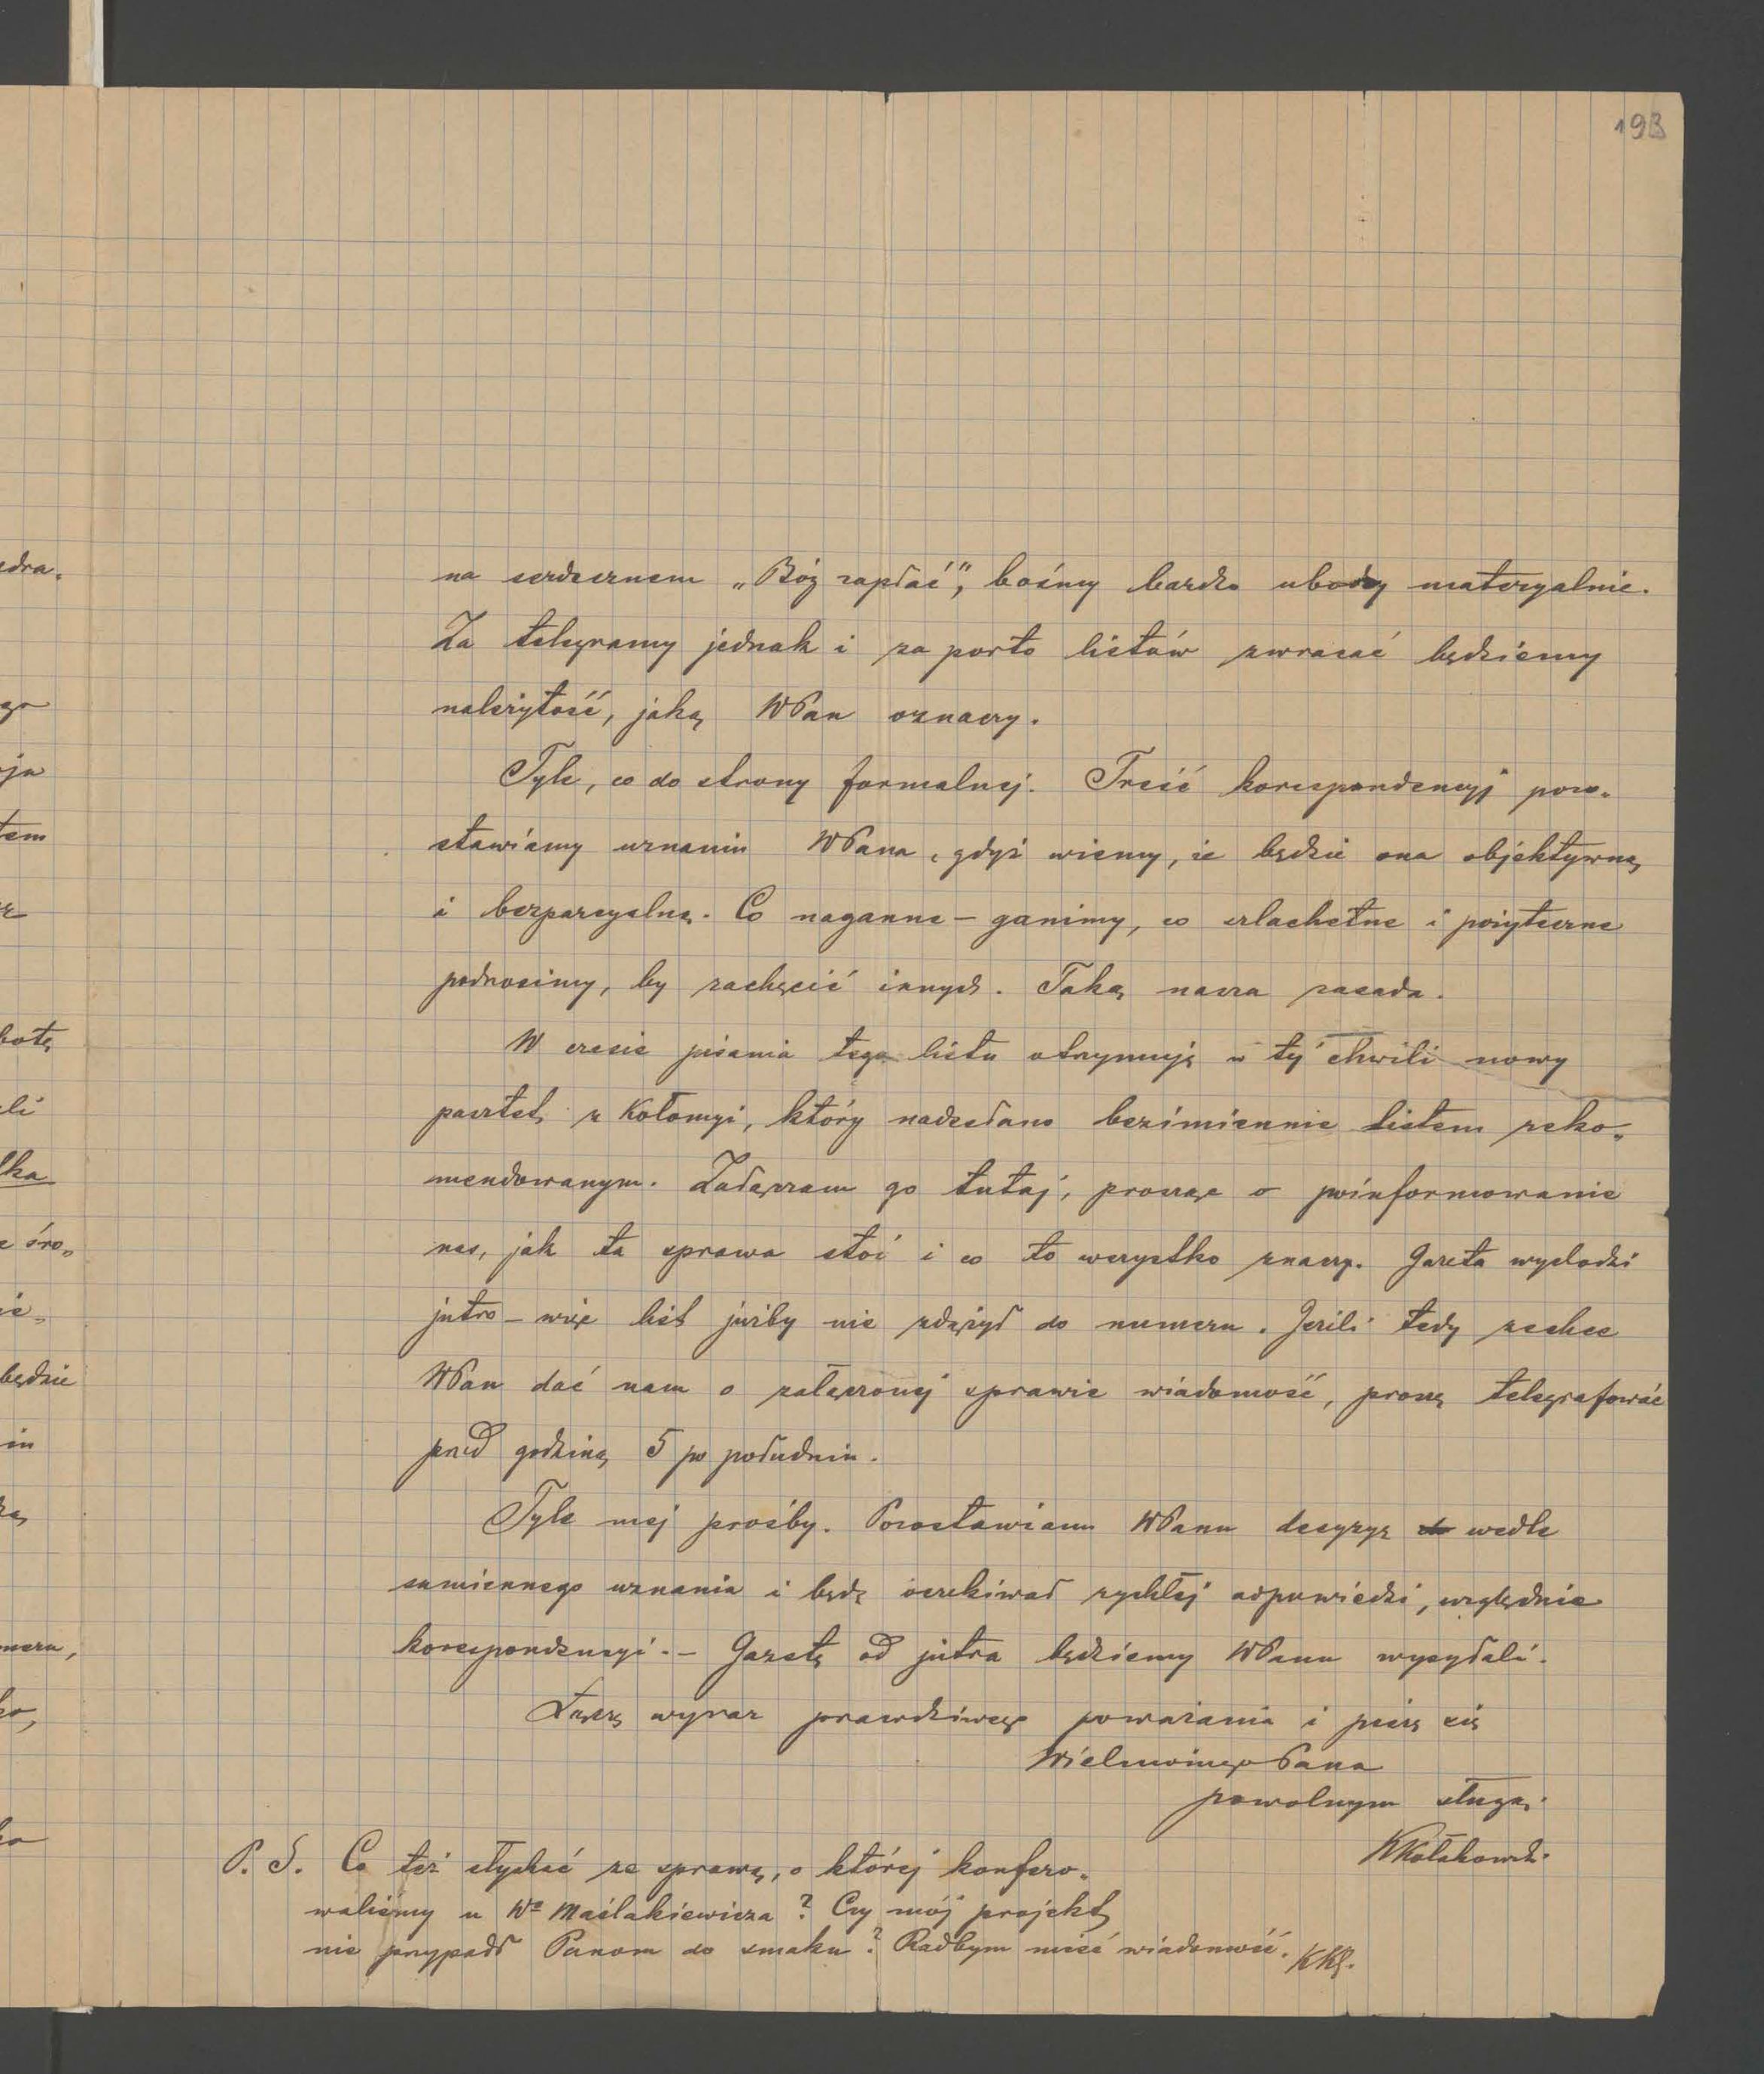 193
na serdecznem „Bóg zapłać”, bośmy bardzo ubodzy materyalnie.
Za telegramy jednak i za porto listów zwracać będziemy
należytość, jaką WPan oznaczy.
Tyle, co do strony formalnej. Treść korespondencyj pozo-
stawiamy uznaniu WPana, gdyż wiemy, że będzie ona objektywną
i bezparcyalną. Co naganne – ganimy, co szlachetne i pożyteczne
podnosimy, by zachęcić innych. Taką nasza zasada.
W czasie pisania tego listu otrzymuję w tej chwili nowy
paszkwil z Kołomyi, który nadesłano bezimiennie listem reko-
mendowanym. Załączam go tutaj, prosząc o poinformowanie
nas, jak ta sprawa stoi i co to wszystko znaczy. Gazeta wychodzi
jutro – więc list jużby nie zdążył do numeru. Jeżeli tedy zechce
WPan dać nam o załączonej sprawie wiadomość, proszę telegrafować
przed godziną 5 po południu.
Tyle mej prośby. Pozostawiam WPanu decyzyę wedle
sumiennego uznania i będę oczekiwał rychłej odpowiedzi, względnie
korespondencyi. – Gazetę od jutra będziemy WPanu wysyłali.
Łączę wyraz prawdziwego poważania i piszę się
Wielmożnego Pana
powolnym sługą.
KKołakowski.
P. S. Co też słychać ze sprawą, o której konfero-
waliśmy u Wo Maślakiewicza? Czy mój projekt
nie przypadł Panom do smaku? Radbym mieć wiadomość. KKł.
edra.
go
ja
tem
botę
eli
lka
e śro-
ie-
będzie
in
meru,
ko,